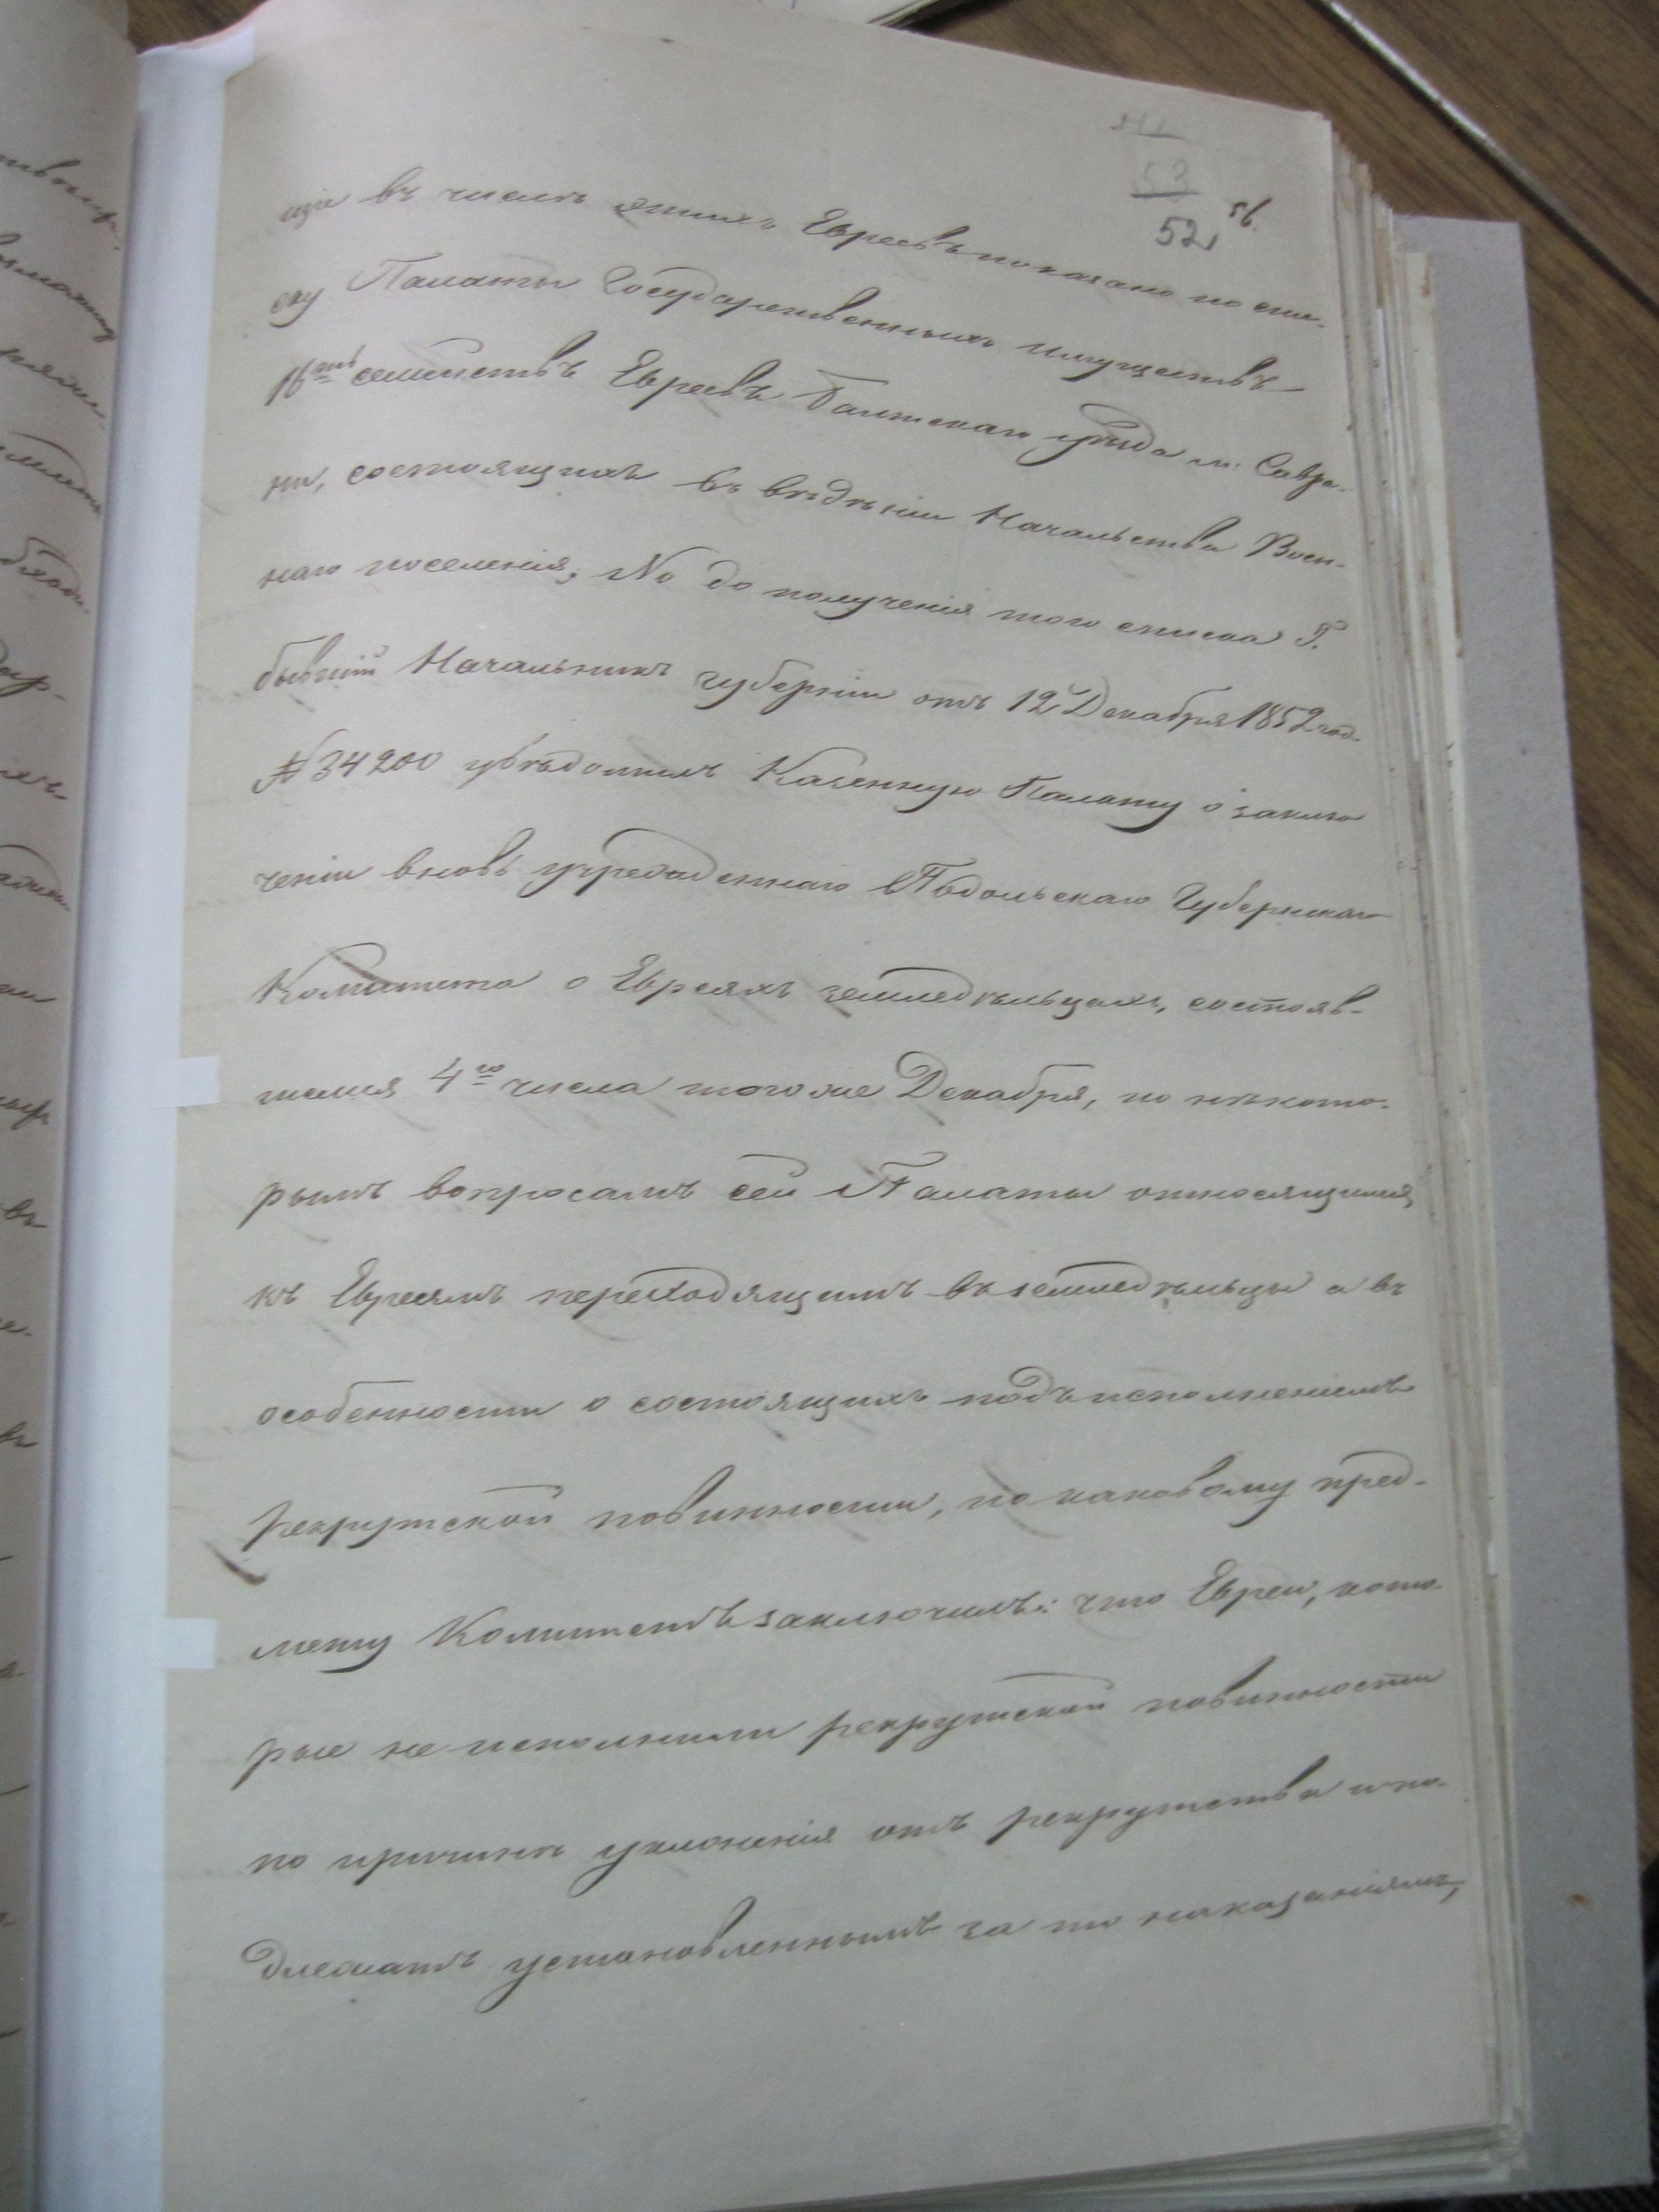 53
52
56.
щіе въ числѣ этихъ Евреевъ показано по спи-
ску Палаты Государственныхъ имуществъ
16ть семействъ Евреевъ Балтскаго уѣзда м: Савра-
ни, состоящихъ въ вѣдѣніи Начальства Воен-
наго поселенія; Но до полученія того списка Г.
бывшій Начальникъ губерніи отъ 12 Декабря 1852 год.
№ 34200 увѣдомилъ Казенную Палату о заклю
ченіи вновь учрежденнаго Подольскаго Губернскаго
Комитета о Евреяхъ земледѣльцахъ, состояв-
шемся 4го числа того же Декабря, по нѣкото-
рымъ вопросамъ сей Палаты относящимся
къ Евреямъ переходящимъ въ земледѣльцы а въ
особенности о состоящихъ подъ исполненіемъ
рекрутской повинности, по каковому пред-
мету Комитетъ заключилъ: что Евреи, кото-
рые не исполнили рекрутской повинности
по причинѣ уклоненія отъ рекрутства и по-
длежатъ установленнымъ за то наказаніямъ,